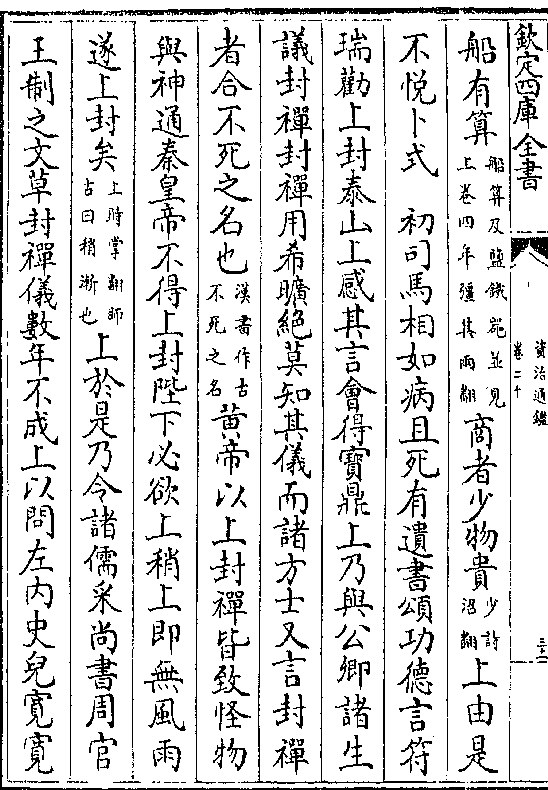 欽定四庫全書
資治通鑑
卷二十
三二
船有算船算及鹽鐵器並見上卷四年彊其兩翻商者少物貴少詩沼翻上由是
不悦卜式　初司馬相如病且死有遺書頌功德言符
瑞勸上封泰山上感其言會得寶鼎上乃與公卿諸生
議封禪封禪用希曠絕莫知其儀而諸方士又言封禪
者合不死之名也漢書作古不死之名黄帝以上封禪皆致怪物
與神通秦皇帝不得上封陛下必欲上稍上即無風雨
遂上封矣上時掌翻師古曰稍漸也上於是乃令諸儒采尚書周官
王制之文草封禪儀數年不成上以問左内史兒寛寛